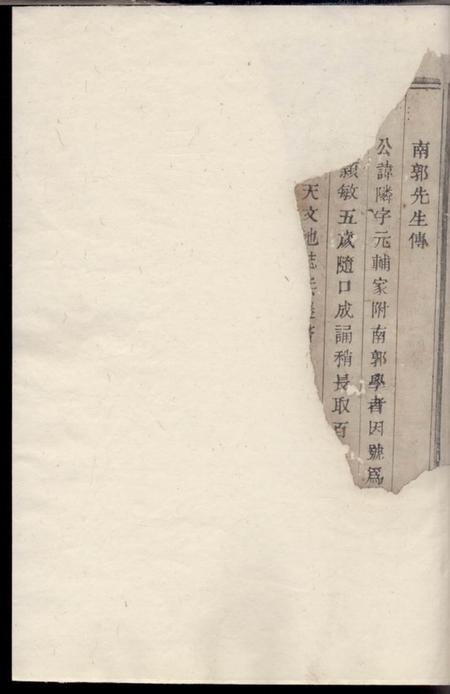 南郭先生傳
公諱隣字元輔家附南郭學者因號爲
穎敏五歲隨口成誦稍長取百
天文地誌